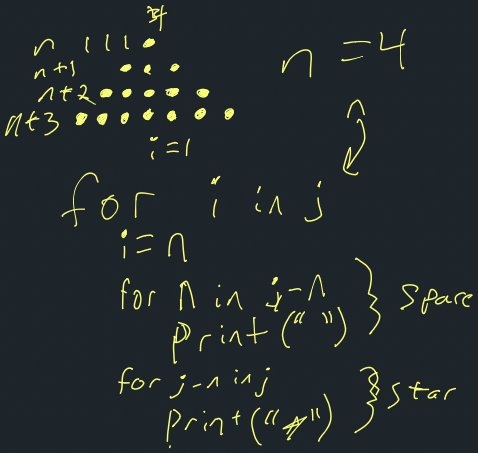 n 111
n+1
n+2
n+3
n = 4
i=1
for i in j
i=n
for n in j-n
print(" ")
} space
for j-n in j
print("*")
} star